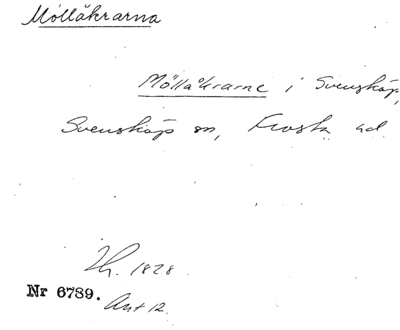 Mölläkrarna
Mölläkrarne i Svensköp,
Svensköp sn, Frosta hd.
Lh. 1828.
Nr 6789.
Akt 12.